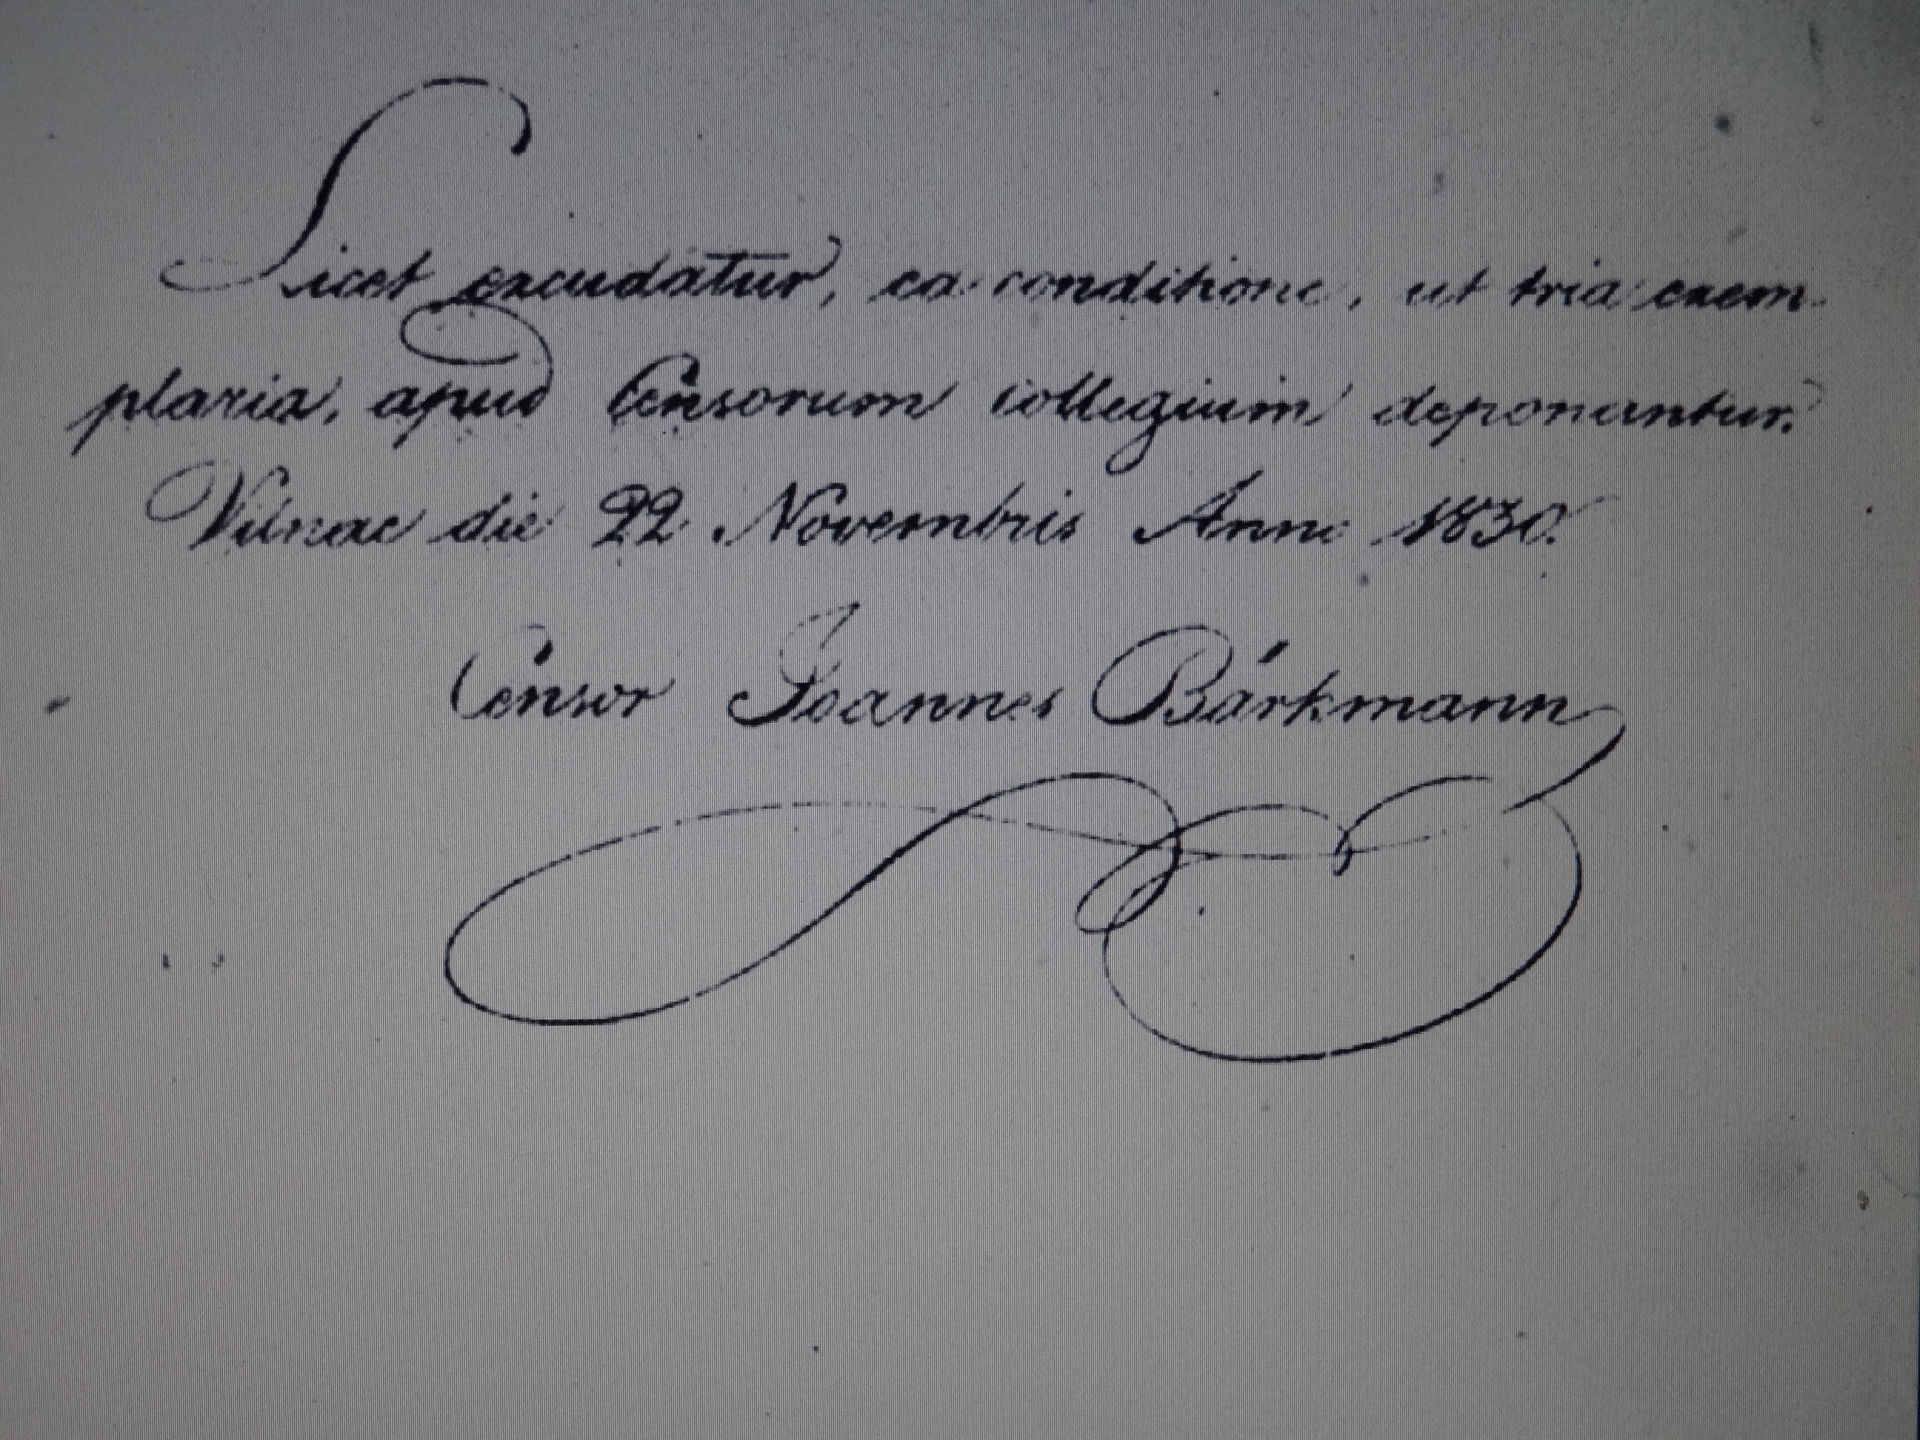 Licet excudatur, ea conditione, ut tria exem-
plaria, apud Censorum collegium deponantur.
Vilnae die 22 Novembris Anno 1830.
Censor Joannes Bárkmann